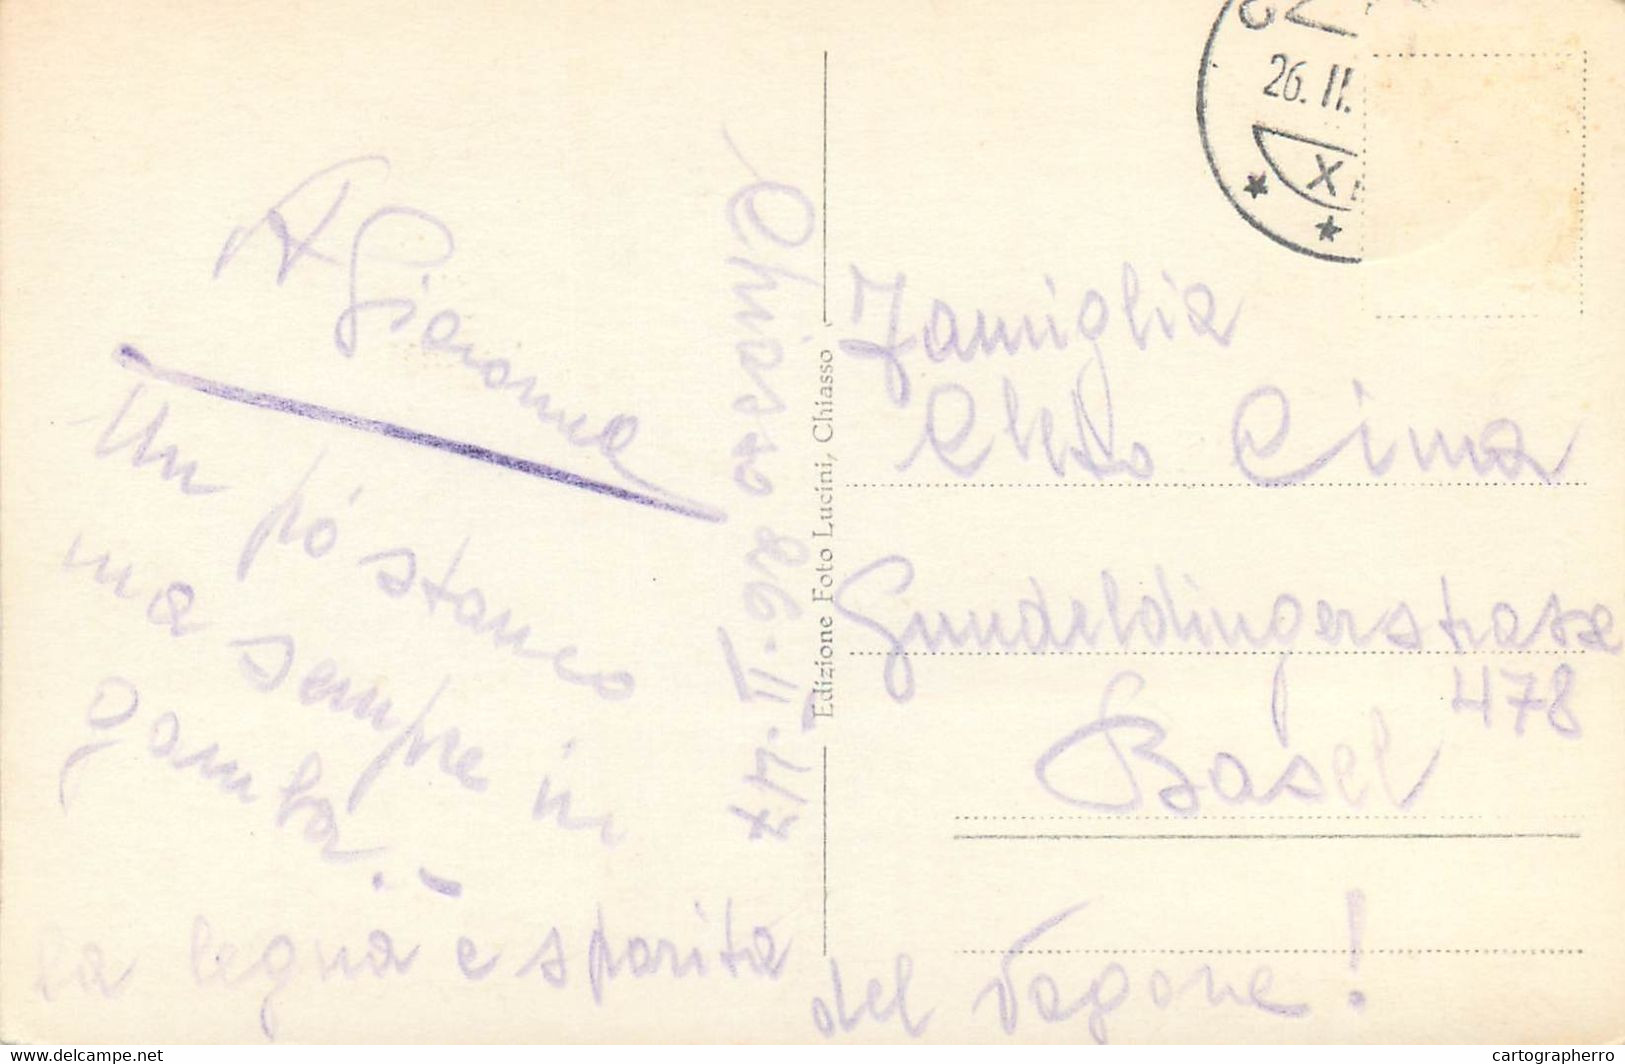 Chiasso 26.II.47.
Gianna
Un pó stanco
ma sempre in
gamba.-
la legna e sparita
del vagone!
Edizione Foto Lucini, Chiasso
26. II.
X
Famiglia
Cima
Gundeldingerstrasse
478
Basel
www.delcampe.net
cartographerro